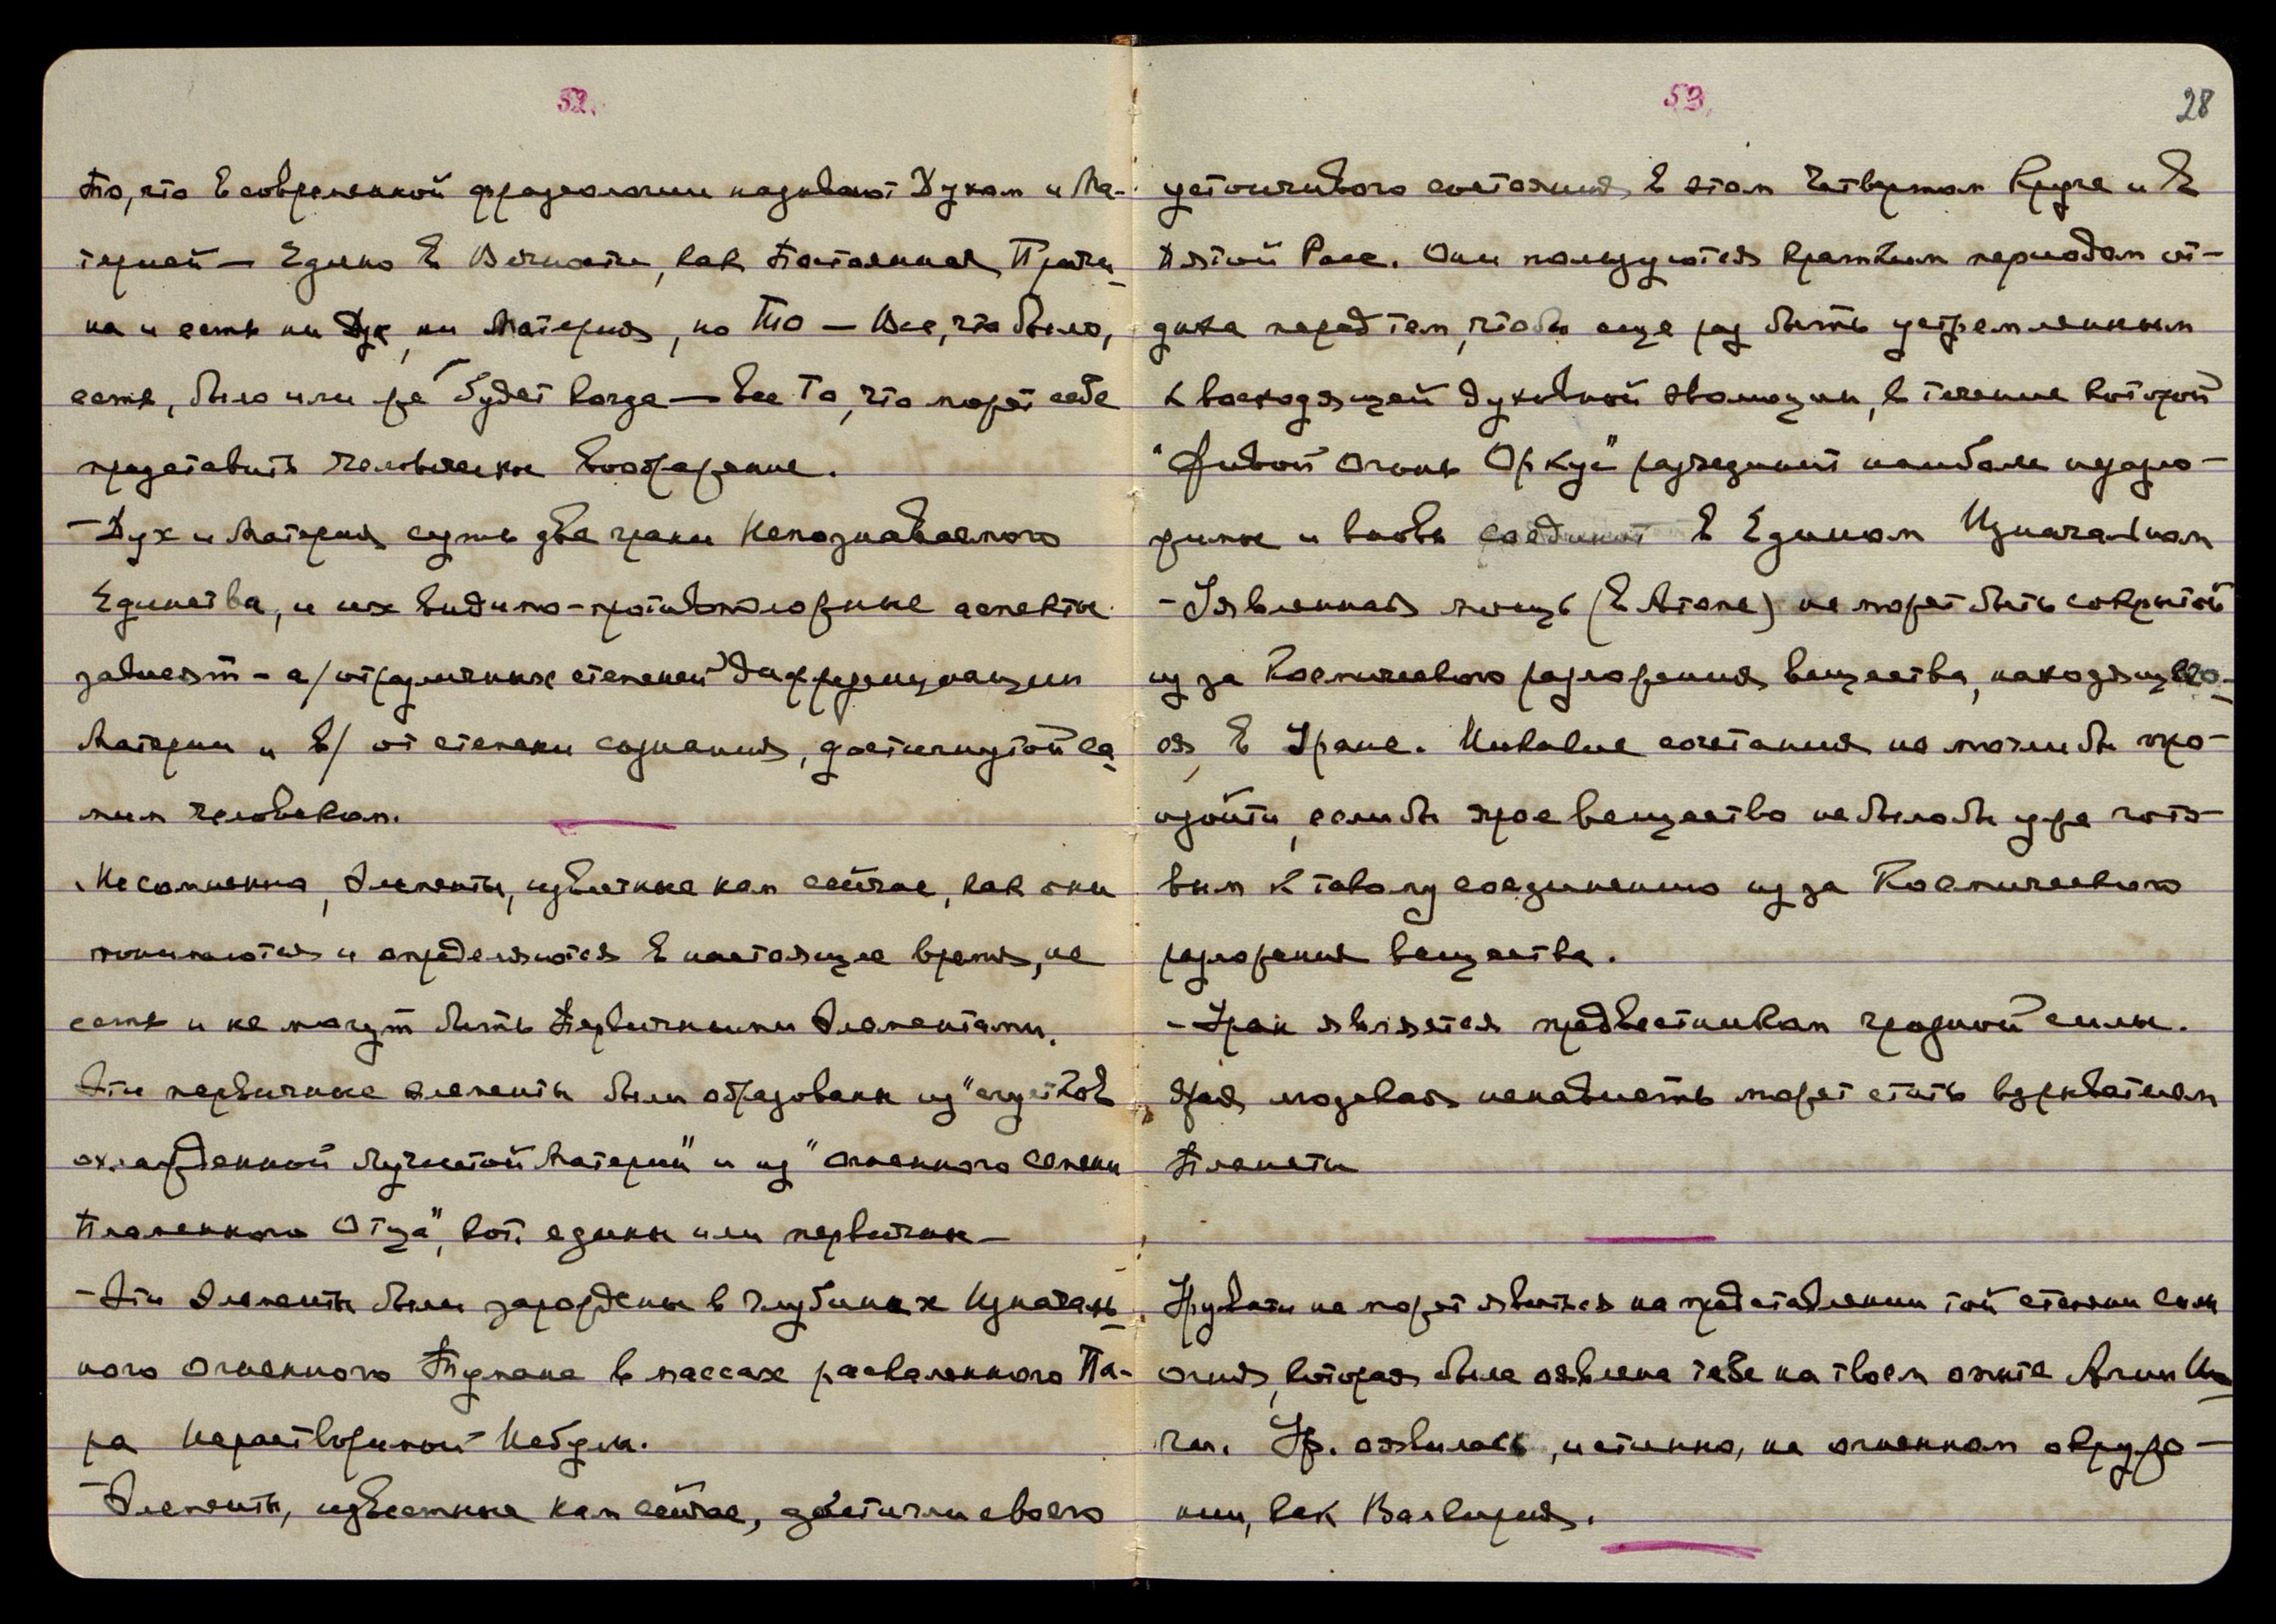 52.
То, что в современной фразеологии называют Духом и Ма-
терией — Едино в Вечности, как Постоянная Причи-
на и есть ни Дух, ни Материя, но То — Все, что было,
есть, было или же будет когда — все То, что может себе
представить человеческое воображение.
- Дух и Материя суть две грани Непознаваемого
Единства, и их видимо-противоположные аспекты
зависят - а/ от различных степеней дифференциации
Материи и в/ от степени сознания, достигнутой са-
мим человеком.
Несомненно, Элементы, известные нам сейчас, как они
понимаются и определяются в настоящее время, не
есть и не могут быть Первичными Элементами.
Эти первичные элементы были образованы из "сгустков
охлажденной Лучистой Материи" и из "Огненного Семени
Пламенного Отца", кот. едины или первичны —
- Эти Элементы были зарождены в глубинах Изначаль-
ного Огненного Тумана в массах раскаленного Па-
ра Нерастворимой Небулы.
- Элементы, известные нам сейчас, достигли своего
59.
28
устойчивого состояния в этом Четвертом Круге и в
Пятой Расе. Они пользуются кратким периодом от-
дыха перед тем, чтобы еще раз быть устремленными
к восходящей духовной эволюции, в течение которой
"Живой Огонь Оркус" разъединит наиболее неразло-
жимые и вновь соединит в Едином Изначальном
- Уявленная мощь (в Атоме) не может быть сокрытой
из за Космического разложения вещества, находящего-
ся в Уране. Никакие сочетания не могли бы про-
изойти, если бы это вещество не было бы уже гото-
вым к такому соединению из за Космического
разложения вещества.
- Уран является предвестником грозной силы.
Злая людская ненависть может стать взрывателем
Планеты
Урувати не может явиться на представлении той степени силы
огня, которая была явлена тебе на твоем опыте Агни Йо-
ги. Ур. оявилась, истинно, на огненном окруже-
нии, как Валкирия.